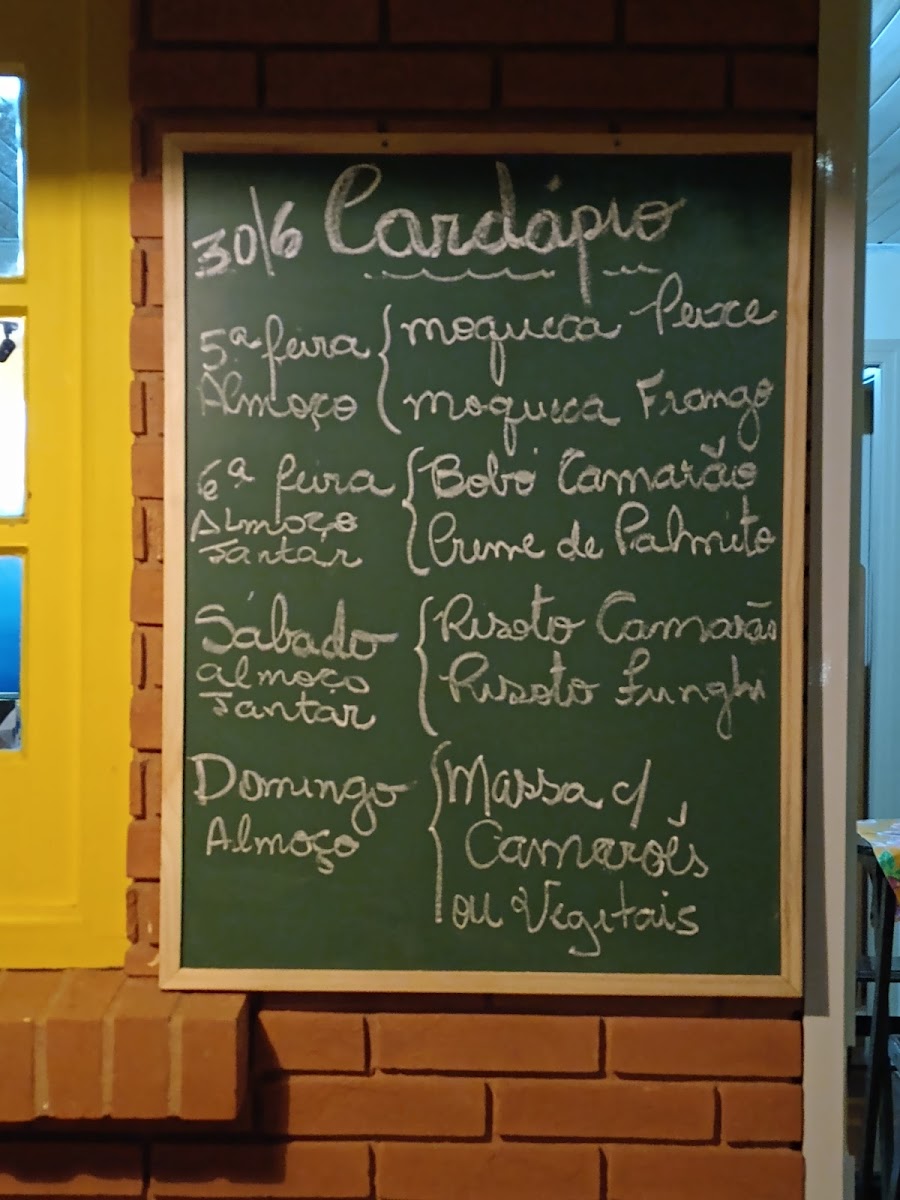 30/6 Cardápio
5ª feira moqueca Peixe
Almoço moqueca Frango
6ª feira Bobó Camarão
Almoço Creme de Palmito
Jantar
Sábado Risoto Camarão
almoço Risoto Funghi
Jantar
Domingo Massa c/
Almoço Camarões
ou Vegetais